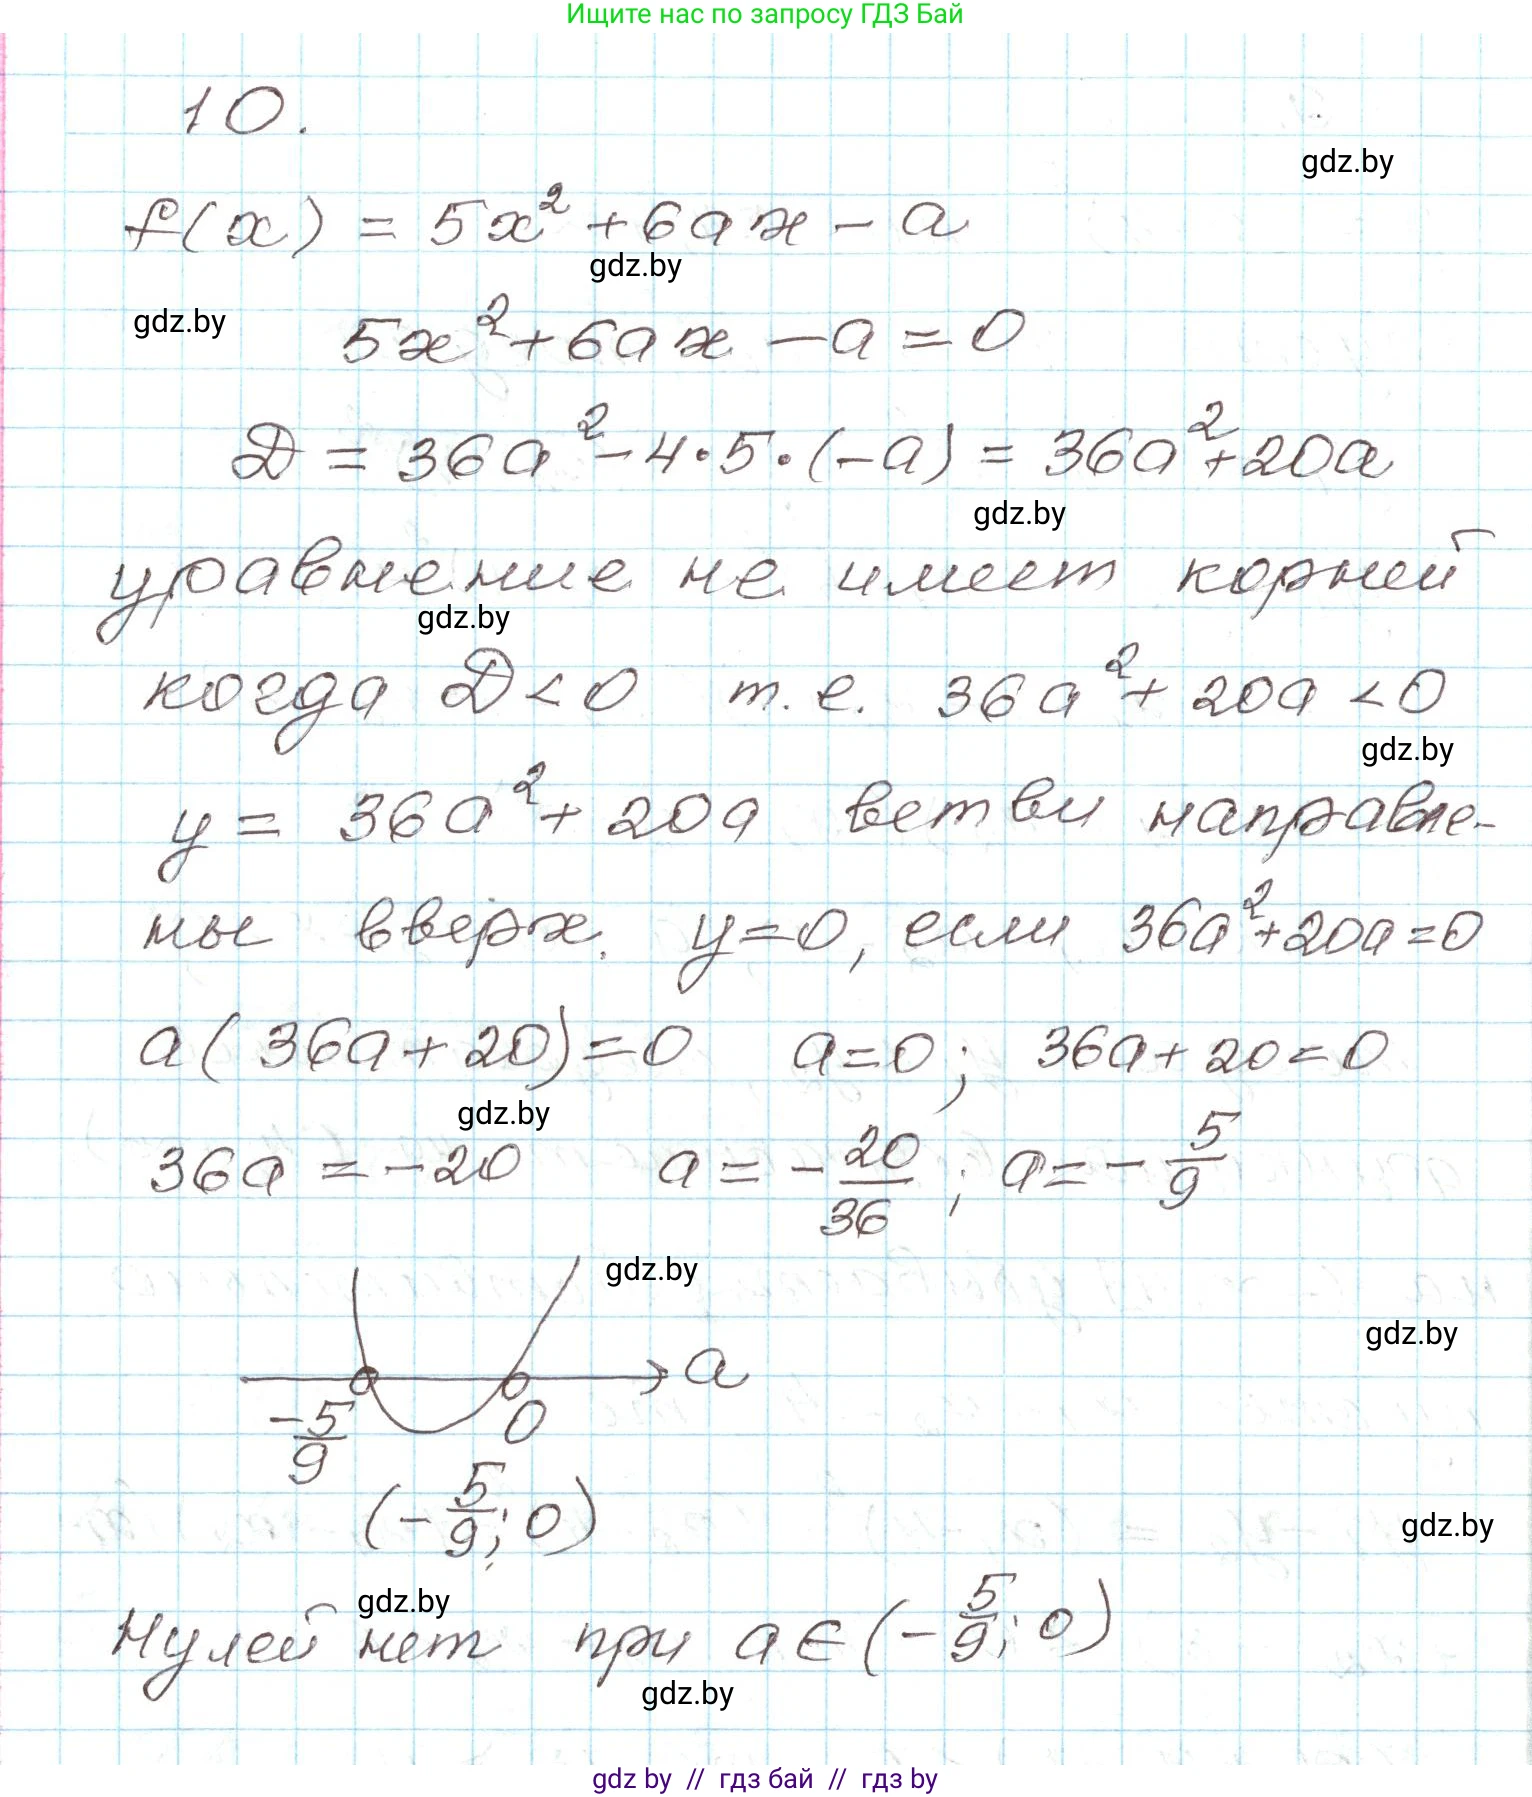 Ищите нас по запросу ГДЗ Бай
10.
gdz.by
f(x) = 5x² + 6ax - a
gdz.by
gdz.by
5x² + 6ax - a = 0
D = 36a² - 4·5·(-a) = 36a² + 20a
gdz.by
уравнение не имеет корней
gdz.by
когда D < 0 т.е. 36a² + 20a < 0
gdz.by
y = 36a² + 20a ветви направле-
ны вверх. y=0, если 36a²+20a=0
a(36a+20)=0 a=0; 36a+20=0
gdz.by
36a = -20 a = -20/36; a = -5/9
gdz.by
gdz.by
a
-5/9 0
(-5/9; 0)
gdz.by
gdz.by
Нулей нет при a∈(-5/9; 0)
gdz.by
gdz by // гдз бай // гдз by